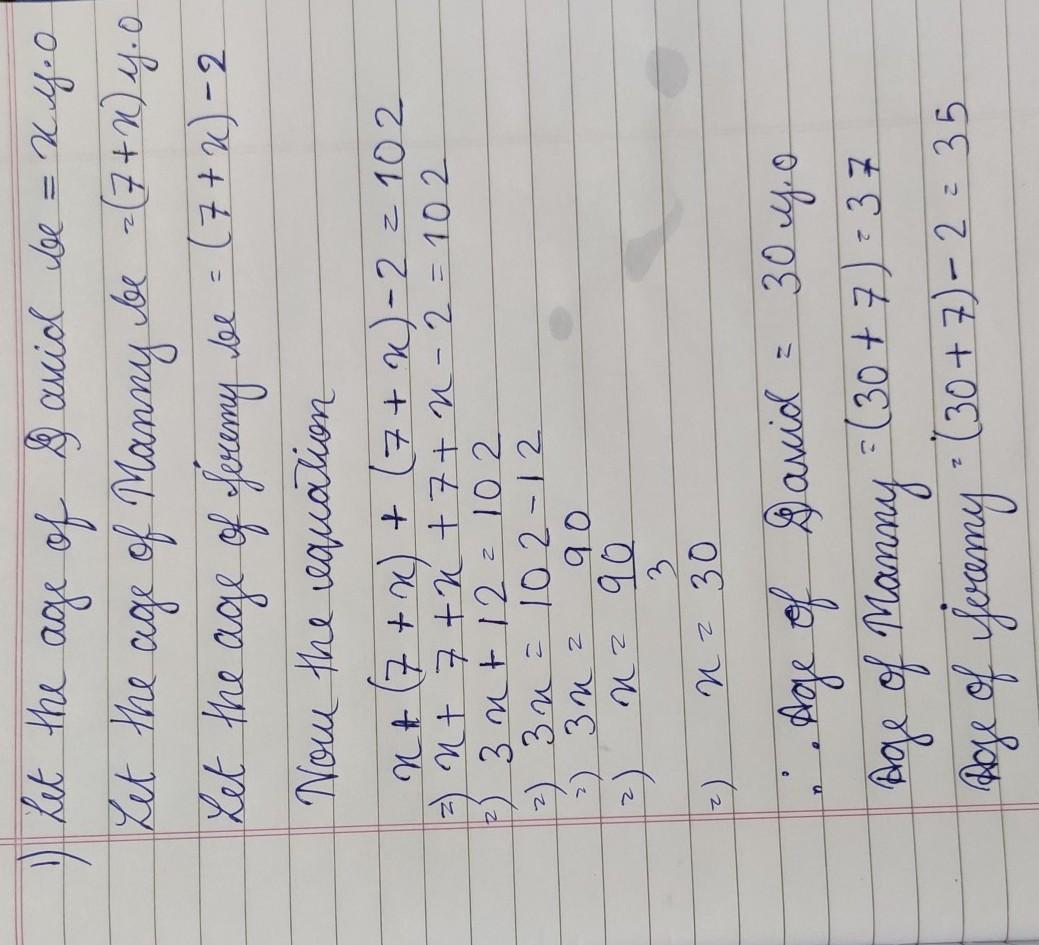 1) Let the age of David be = x y.o
Let the age of Manny be = (7+x) y.o
Let the age of Jeremy be = (7+x)-2
Now the equation
x+(7+x)+(7+x)-2=102
=) x+7+x+7+x-2=102
=) 3x+12=102
=) 3x=102-12
=) 3x=90
=) x=90/3
=) x=30
∴ Age of David = 30 y.o
Age of Manny = (30+7)=37
Age of Jeremy = (30+7)-2=35